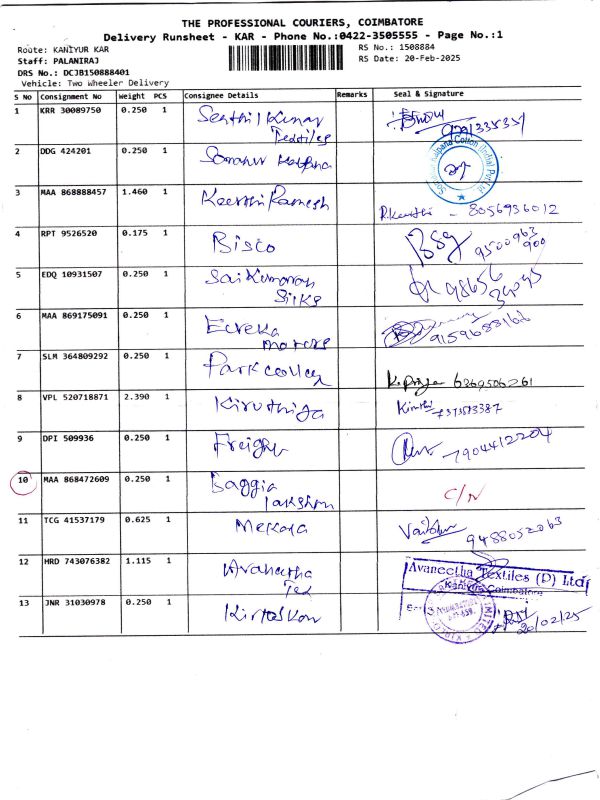 THE PROFESSIONAL COURIERS, COIMBATORE
Delivery Runsheet - KAR - Phone No.:0422-3505555 - Page No.:1
Route: KANIYUR KAR
RS No.: 1508884
Staff: PALANIRAJ
RS Date: 20-Feb-2025
DRS No.: DCJB150888401
Vehicle: Two Wheeler Delivery
S No Consignment No Weight PCS Consignee Details Remarks Seal & Signature
1 KRR 30089750 0.250 1 Senthil Kumar
Textiles
2 DDG 424201 0.250 1 Somanur Kalpana
3 MAA 868888457 1.460 1 Keerthi Ramesh R.Keerthi - 8056936012
4 RPT 9526520 0.175 1 Bisco 9500963
900
5 EDQ 10931507 0.250 1 Sai Kumaran 98656
Silks
6 MAA 869175091 0.250 1 Eureka
motors 9159688166
7 SLM 364809292 0.250 1 Park college K.Priya 6369506261
8 VPL 520718871 2.390 1 Kiruthiga
9 DPI 509936 0.250 1 Freight 7904412204
10 MAA 868472609 0.250 1 Baggia C/N
lakshmi
11 TCG 41537179 0.625 1 Mekala 9488052063
12 HRD 743076382 1.115 1 Avaneetha Avaneetha Textiles (P) Ltd
Tex Kaniyur, Coimbatore
13 JNR 31030978 0.250 1 Kirloskar 20/02/25